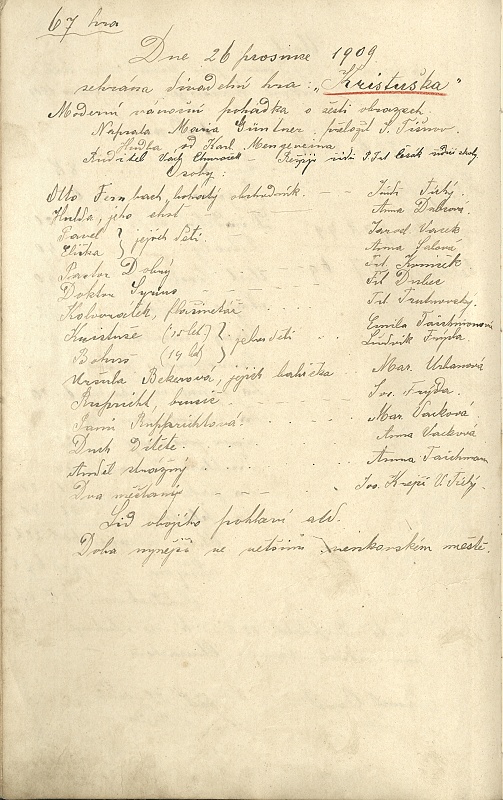 67 hra
Dne 26 prosince 1909
sehrána divadelní hra: „Kristuška“
Moderní vánoční pohádka o šesti obrazech.
Napsala Maria Günther přeložil J. Tišnov.
Hudba od Karl. Mengeweina
Ředitel Vach Chmoěek – Režije řídí P. Frt. Česák řídící školy
Osoby:
Otto Fernbach, bohatý obchodník. – Jindř. Tichý.
Hulda, jeho choť Anna Dubcová.
Pavel } jejich děti. Jarod Vacek
Eliška Anna Salová
Pastor Dobrý Frt. Komíček
Doktor Syrus Frt Dubec
Kolovrátek, flašinetář Frt. Trutnovský.
Kristuše (15 let) } jeho děti Emilie Taichmanová
Bohuš (14 let) Ludvík Frýda
Uršula Bekerová, jejich babička Mar. Urbanová
Rupricht, Jos. Frýda.
Paní Ruprichtová Mar. Vacková.
Duch Dítěte. Anna Vacková
Anděl strážný Anna Taichman
Dva měšťané Jos. Krejčí V. Tichý.
Lid obojího pohlaví atd.
Doba nynější ve větším venkovském městě.